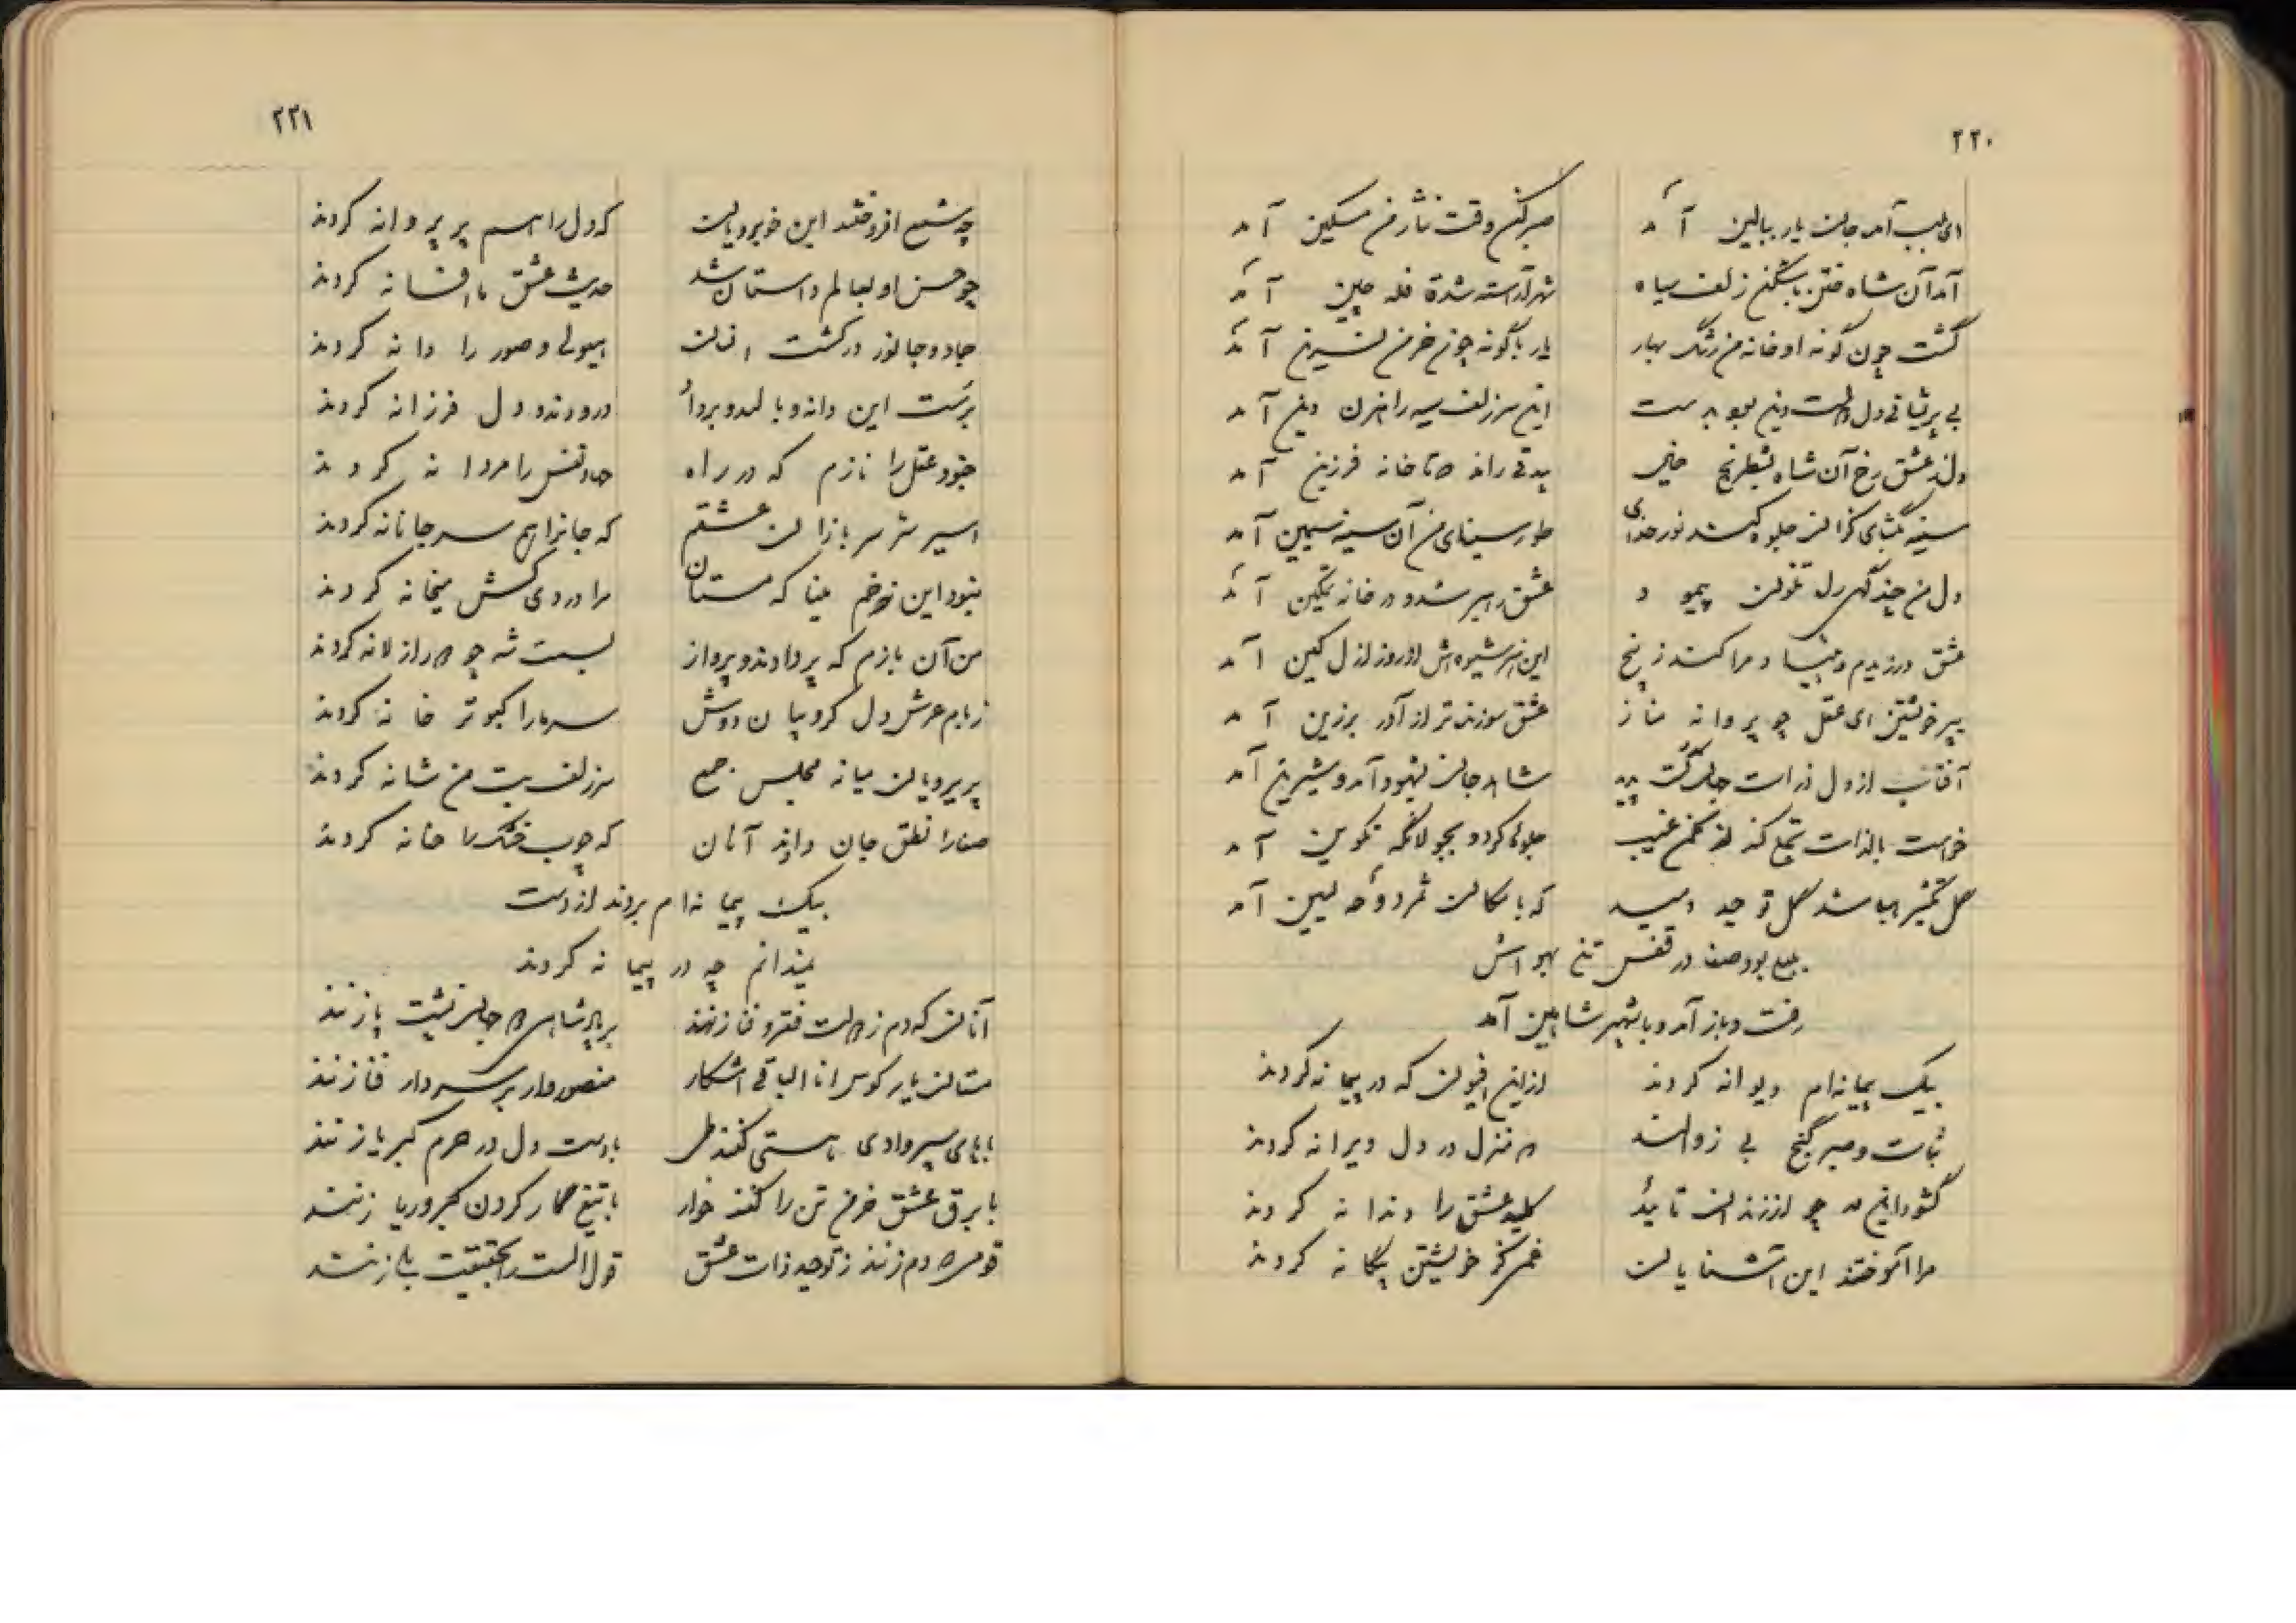 ۲۲۰
ای طبیب آمد جان یار ببالین آمد
صبر کن وقت نثار من مسکین آمد
آمد آن شاه ختن با شکن زلف سیاه
شهر آراسته شد قافله چین آمد
گشت چون گونه او خانه من رنگ بهار
یار با گونه چون خرمن نسرین آمد
بی پریشانی دل نیست
این سر زلف سیه راهزن دین آمد
عشق رخ آن شاه بشطرنج خیال
بیدقی راند که تا خانه فرزین آمد
سینه بگشای کزان جلوه کند نور خدای
طور سینای من آن سینه سیمین آمد
دل من چند گهی راه تلون پیمود
عشق رهبر شد و در خانه تمکین آمد
عشق ورزیدم و مرا کشت ز رنج
این شیوه اش از روز ازل کین آمد
بپر خویشتن ای عقل چو پروانه مناز
عشق سوزنده تر از آذر برزین آمد
آفتاب از دل ذرات جهان گشت پدید
شاهد جان بشهود آمد و شیرین آمد
خواست بالذات تجلی کند از مکمن غیب
جلوه کرد و بجولانگه تکوین آمد
گل توحید دمید
آمد
بود صفا در قفس تن بهواش
رفت و باز آمد و با شهپر شاهین آمد
بیک پیمانه ام دیوانه کردند
ازین افیون که در پیمانه کردند
ثبات و صبر گنج بی زوالند
که منزل در دل ویرانه کردند
گشودند این در چو از زندان تأیید
کلید عشق را دندانه کردند
مرا آموختند این آشنایان
خویشتن بیگانه کردند
۲۲۱
چه شمع افروختند این خوبرویان
که دل را هم پر پروانه کردند
چو حسن او بعالم داستان شد
حدیث عشق ما افسانه کردند
جماد و جانور در کشت انسان
هیولی و صور را دانه کردند
برست این دانه و بالید و بر داد
درودند و دل فرزانه کردند
جنود عقل را نازم که در راه
جهاد نفس را مردانه کردند
اسیر سربازان عشقم
که جانرا هم سر جانانه کردند
نبود این خم مینا که مستان
مرا دردی کش میخانه کردند
من آن بازم که پر دادند و پرواز
بدست شه چو م از لانه کردند
ز بام عرش دل کروبیان دوش
سر ما را کبوتر خانه کردند
پریرویان میانه مجلس جمع
سر زلف بت من شانه کردند
صفا را نطق جان دادند آنان
که چوب خشک را حنانه کردند
بیک پیمانه ام بردند از دست
نمیدانم چه در پیمانه کردند
آنان که دم ز دولت فقر و فنا زنند
بر شاهی جهان پشت پا زنند
مستان یار کوس انا الباقی آشکار
منصور وار بر سر دار فنا زنند
با پای سیر وادی هستی کنند طی
با دست دل در حرم کبریا زنند
با برق عشق خرمن تن را کنند خوار
با تیغ گردن کبر و ریا زنند
قومی که دم زنند ز توحید ذات عشق
قول الست را بحقیقت بلی زنند